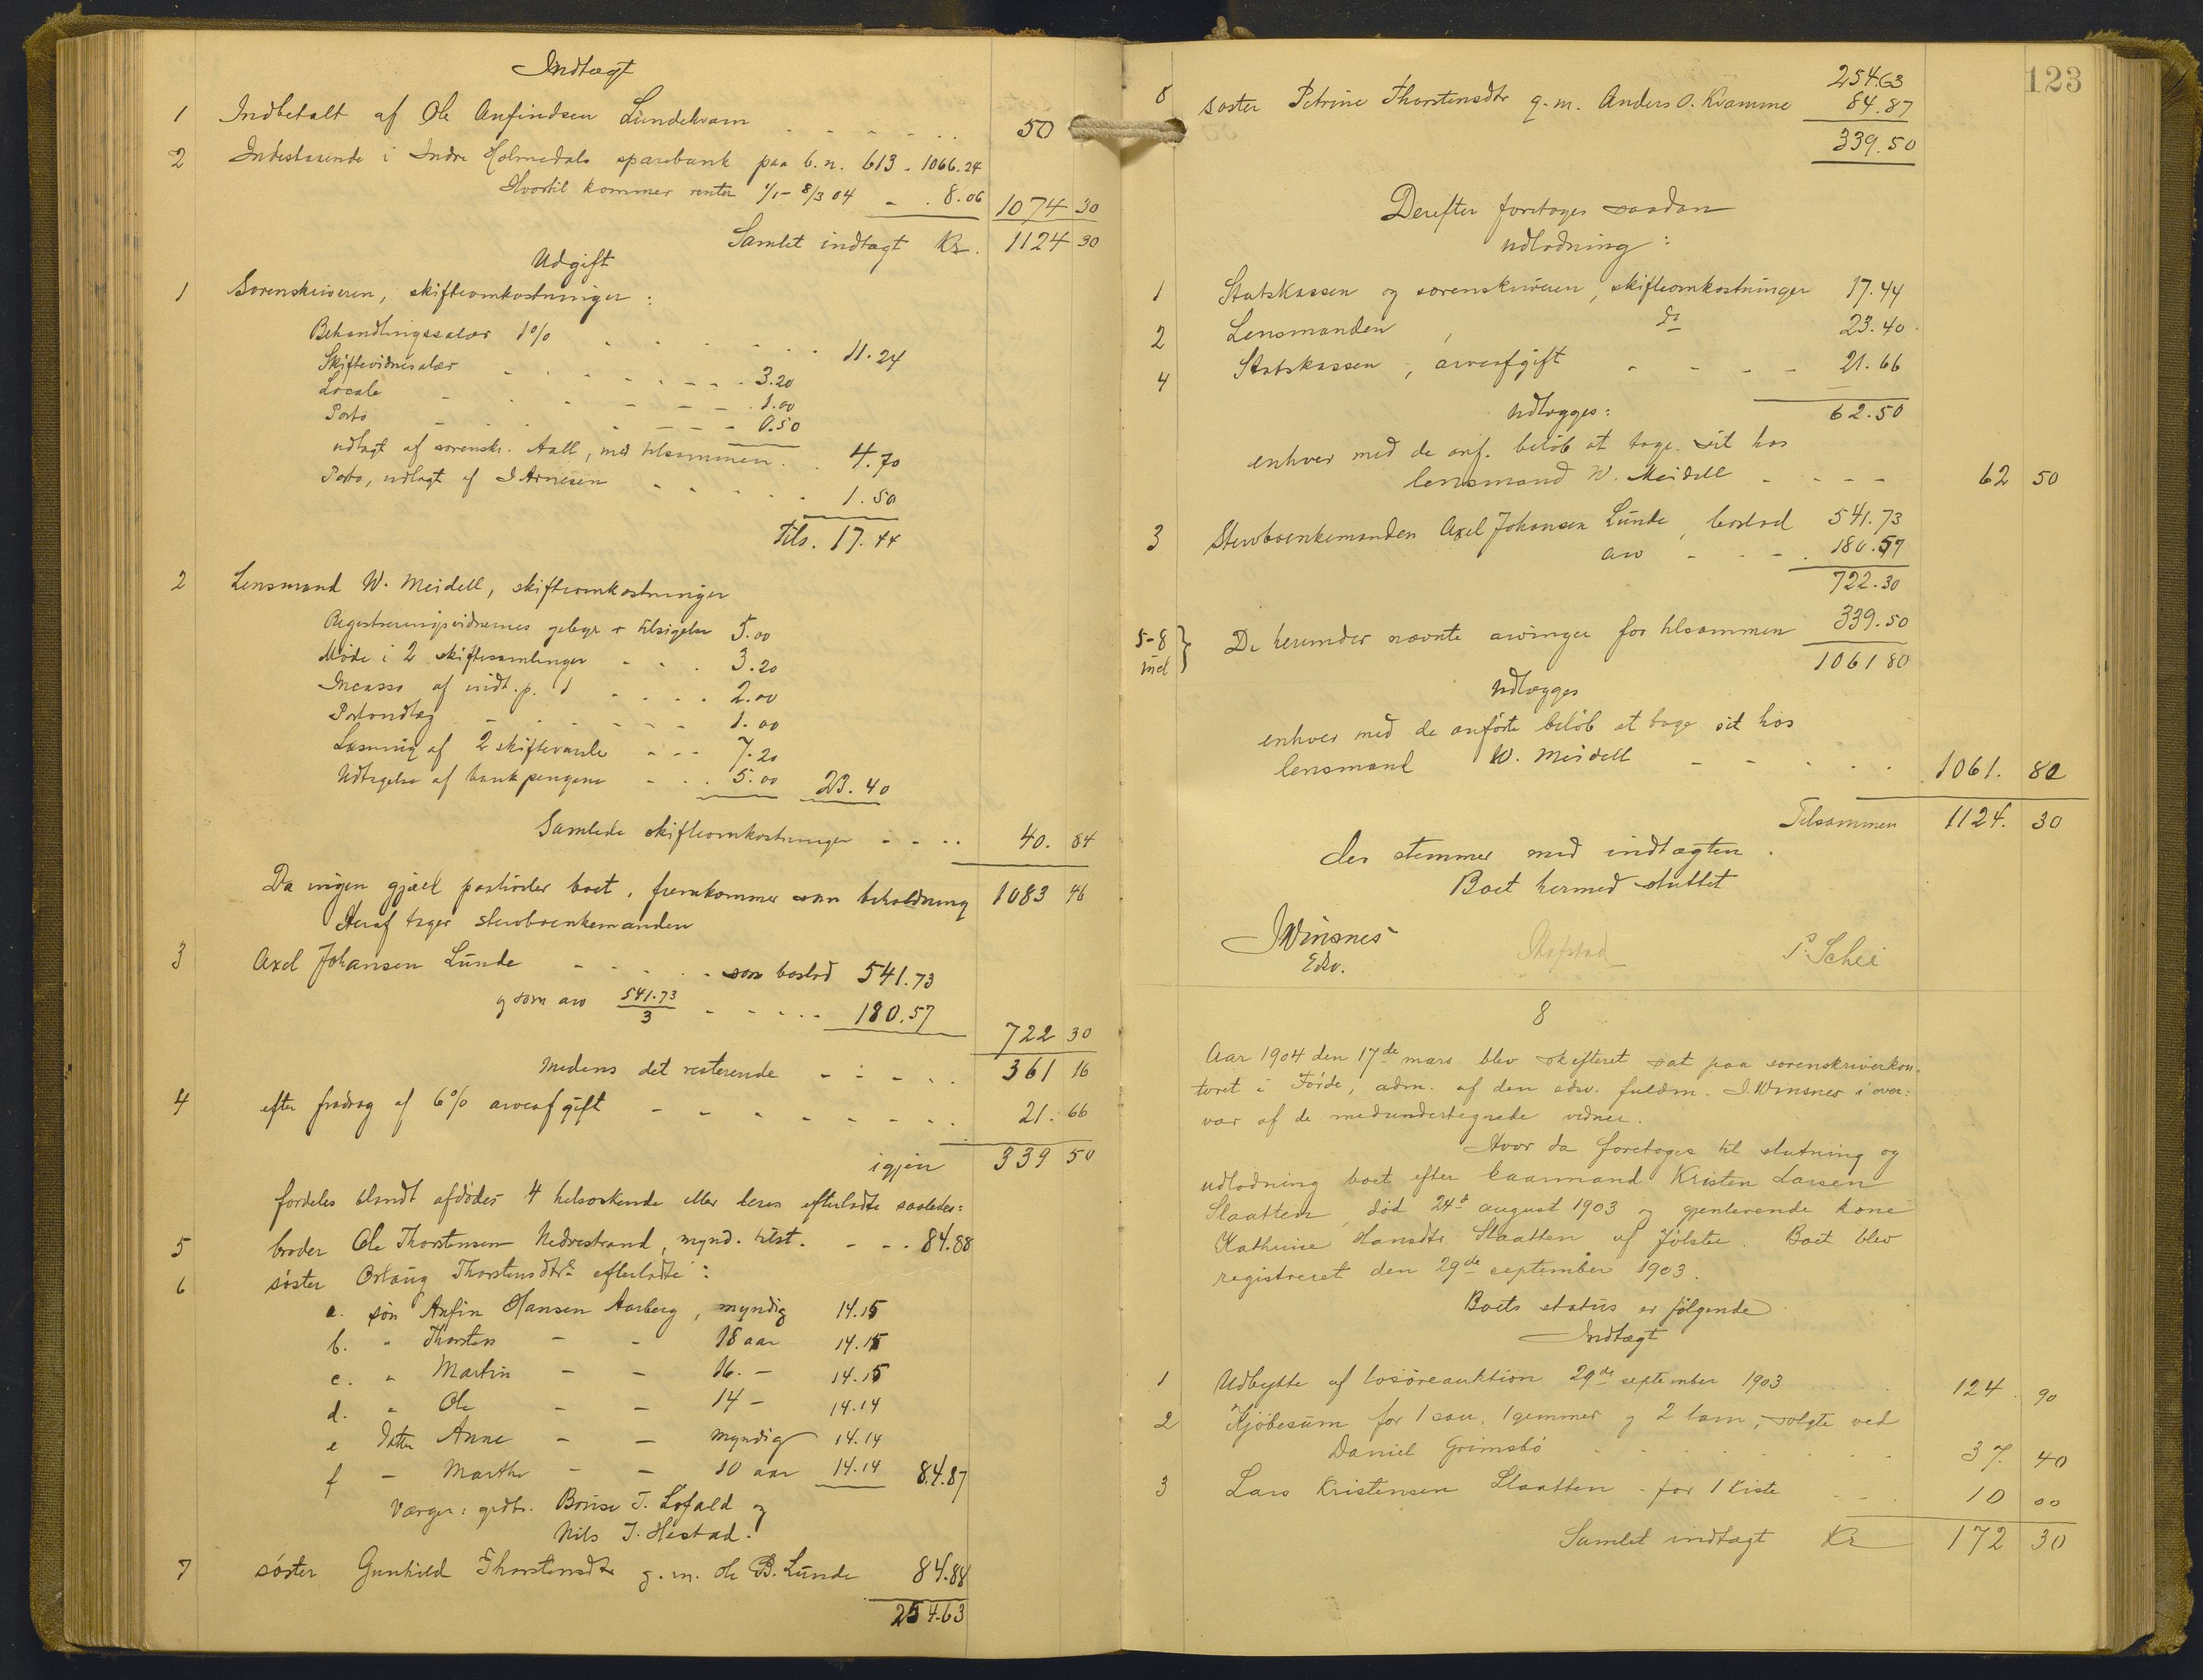 Indtægt
1 Indbetalt af Ole Anfindsen Lundekvam - - - - - - 50
2 Indestaaende i Indre Holmedals sparebank paa b.n. 613 - 1066.24
Hvortil kommer renter 1/1 - 8/3 04 - . 8.06 1074 30
Samlet indtægt Kr. 1124 30
Udgift
1 Sorenskriveren, skifteomkostninger:
Behandlingssalær 1% - - - - - - 11.24
Skiftevidnesalær - - - - - - - 3.20
Locale - - - - - - 1.00
Porto - - - - - - 0.50
udlagt af sorenskr. Aall, med tilsammen . . 4.70
Porto, udlagt af I Arnesen - - - - - 1.50
Tils. 17.44
2 Lensmand W. Meidell, skifteomkostninger
Registreringsvidnernes gebyr + tilsigelse 5.00
Møde i 2 skiftesamlinger - - . 3.20
Incasso af indt.p. 1 - - - - 2.00
Portoudlæg - - - - - - 1.00
Læsning af 2 skiftevarsle - - - 7.20
Udtagelse af bankpengene - - . 5.00 23.40
Samlede skifteomkostninger - - - - 40. 84
Da ingen gjæld paahviler boet, fremkommer som beholdning 1083 46
Heraf tager stervboenkemanden
3 Axel Johansen Lunde - - - - - som boslod 541.73
og som arv 541.73/3 - - - - - 180.57
722 30
Medens det resterende - - - - - 361 16
4 efter fradrag af 6% arveafgift - - - - - - - - 21. 66
igjen 339 50
fordeles blandt afdødes 4 helsøskende eller deres efterladte saaledes:
5 broder Ole Thorstensen Nedrestrand, mynd. tilst. - - - 84.88
6 søster Orlaug Thorstensdtrs efterladte:
a. søn Anfin Hansen Aarberg, myndig 14.15
b. " Thorsten - - 18 aar 14.15
c. " Martin - - 16. - 14.15
d. " Ole - - 14 - 14.14
e datter Anne - - myndig 14.14
f - Marthe - - 10 aar 14.14 84.87
Værger: grdbr. Bruse T. Løfald og
Nils J. Hestad.
7 søster Gunhild Thorstensdtr g.m. Ole B. Lunde 84.88
254.63
123
254.63
8 søster Petrine Thorstensdtr g.m. Anders O. Kvamme 84.87
339.50
Derefter foretoges saadan
udlodning:
1 Statskassen og sorenskriveren, skifteomkostninger 17.44
2 Lensmanden , do 23.40
4 Statskassen, arveafgift - - - - 21.66
Udlægges: 62.50
enhver med de anf. beløb at tage sit hos
lensmand W. Meidell - - - - 62 50
3 Stervboenkemanden Axel Johansen Lunde, boslod 541.73
arv - - - . 180.57
722.30
5-8 incl } De herunder nævnte arvinger for tilsammen 339.50
1061 80
Udlægges
enhver med de anførte beløb at tage sit hos
lensmand W. Meidell - - - - - 1061. 80
Tilsammen 1124. 30
der stemmer med indtægten.
Boet hermed sluttet
JWinsnes
Edsv.
Skafstad P. Schei
8
Aar 1904 den 17de mars blev skifteret sat paa sorenskriverkon-
toret i Førde, adm. af den edsv. fuldm. J. Winsnes i over-
vær af de medundertegnede vidner.
Hvor da foretoges til slutning og
udlodning boet efter kaarmand Kristen Larsen
Slaatten, død 24de august 1903 og gjenlevende kone
Kathrine Hansdtr. Slaatten af Jølster. Boet blev
registreret den 29de september 1903.
Boets status er følgende
Indtægt
1 Udbytte af løsøreauktion 29de september 1903 . . . . 124 . 90
2 Kjøbesum for 1 sau, 1 gimmer og 2 lam, solgte ved
Daniel Grimsbø - - - - - - - 37. 40
3 Lars Kristensen Slaatten - for 1 kiste - - . 10 00
Samlet indtægt Kr 172 30